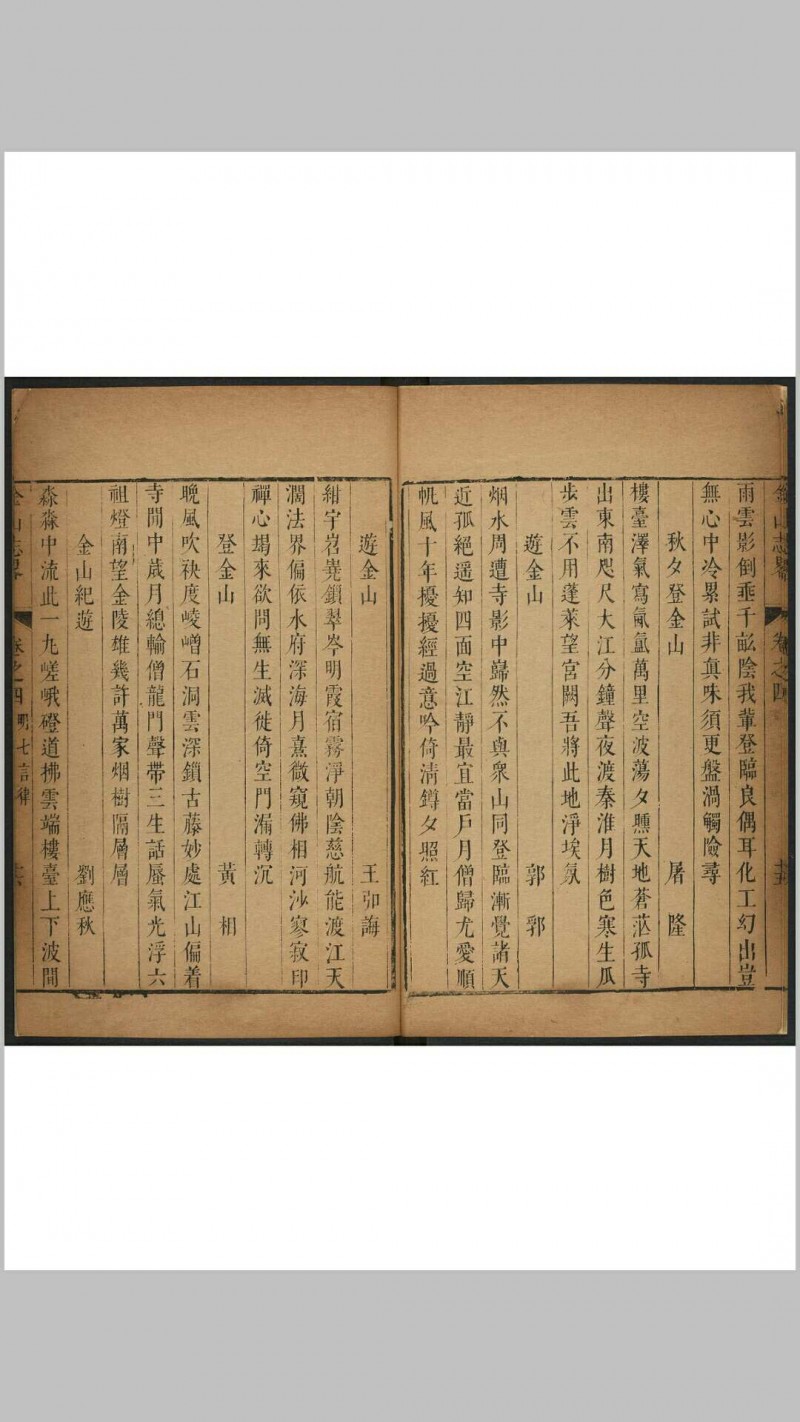 金山志畧 卷之四
雨雲影倒垂千畝陰我輩登臨良偶耳化工幻出豈
無心中冷累試非真味須更盤渦觸險尋
秋夕登金山 屠隆
樓臺澤氣寫氤氳萬里空波蕩夕曛天地蒼茫孤寺
出東南咫尺大江分鐘聲夜渡秦淮月樹色寒生瓜
步雲不用蓬萊望宮闕吾將此地淨埃氛
遊金山 郭郛
烟水周遭寺影中巋然不與衆山同登臨漸覺諸天
近孤絕遥知四面空江靜最宜當戶月僧歸尤愛順
帆風十年擾擾經過意吟倚清罇夕照紅
遊金山 王弅誨
紺宇岧嶤鎖翠岑明霞宿霧淨朝陰慈航能渡江天
濶法界偏依水府深海月熹微窺佛相河沙寥寂印
禪心朅來欲問無生滅徙倚空門漏轉沉
登金山 黃相
晚風吹袂度崚嶒石洞雲深鎖古藤妙處江山偏着
寺閒中歲月總輸僧龍門聲帶三生話蜃氣光浮六
祖燈南望金陵雄幾許萬家烟樹隔層層
金山紀遊 劉應秋
淼淼中流此一丸嵯峨磴道拂雲端樓臺上下波間
金山志畧 卷之四 明七言律